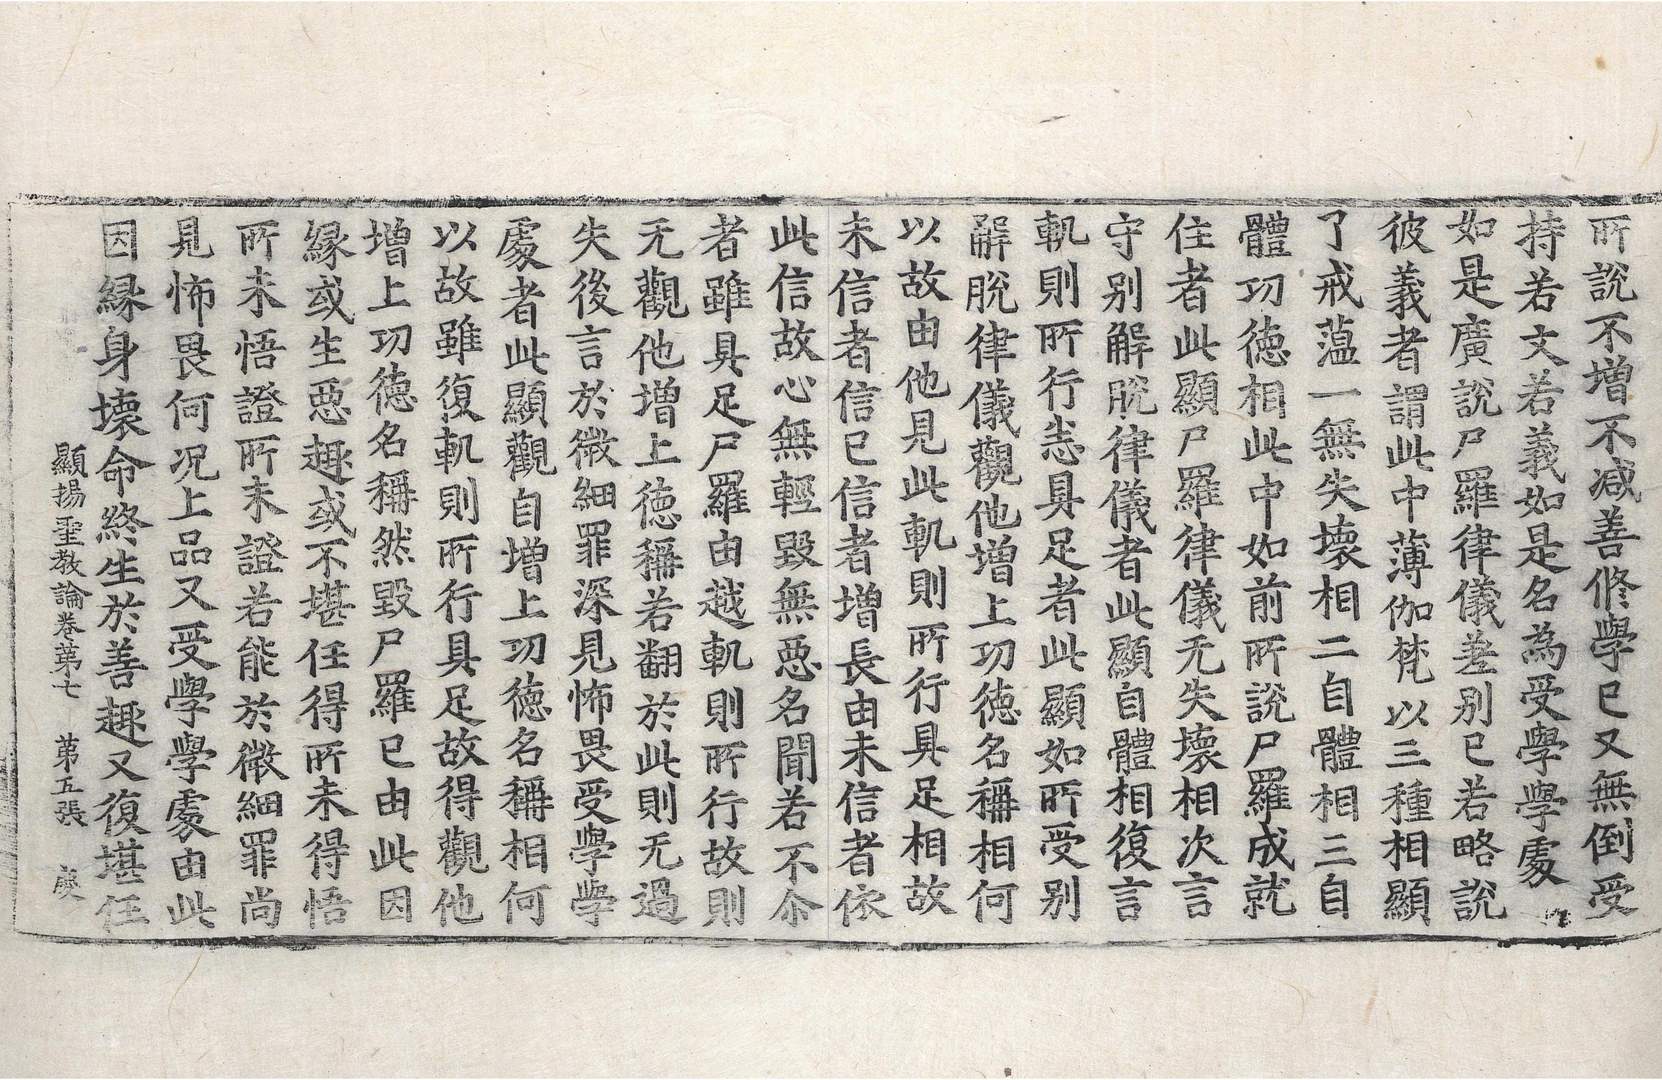 所說不增不減善修學已又無倒受
持若文若義如是名為受學學處
如是廣說尸羅律儀差別已若略說
彼義者謂此中薄伽梵以三種相顯
了戒蘊一無失壞相二自體相三自
體功德相此中如前所說尸羅成就
住者此顯尸羅律儀无失壞相次言
守別解脫律儀者此顯自體相復言
軌則所行恙具足者此顯如所受別
解脫律儀觀他增上功德名稱相何
以故由他見此軌則所行具足相故
未信者信已信者增長由未信者依
此信故心無輕毀無惡名聞若不尒
者雖具足尸羅由越軌則所行故則
无觀他增上德稱若翻於此則无過
失後言於微細罪深見怖畏受學學
處者此顯觀自增上功德名稱相何
以故雖復軌則所行具足故得觀他
增上功德名稱然毀尸羅已由此因
緣或生惡趣或不堪任得所未得悟
所未悟證所未證若能於微細罪尚
見怖畏何况上品又受學學處由此
因緣身壞命終生於善趣又復堪任
顯揚聖教論卷第七 第五張